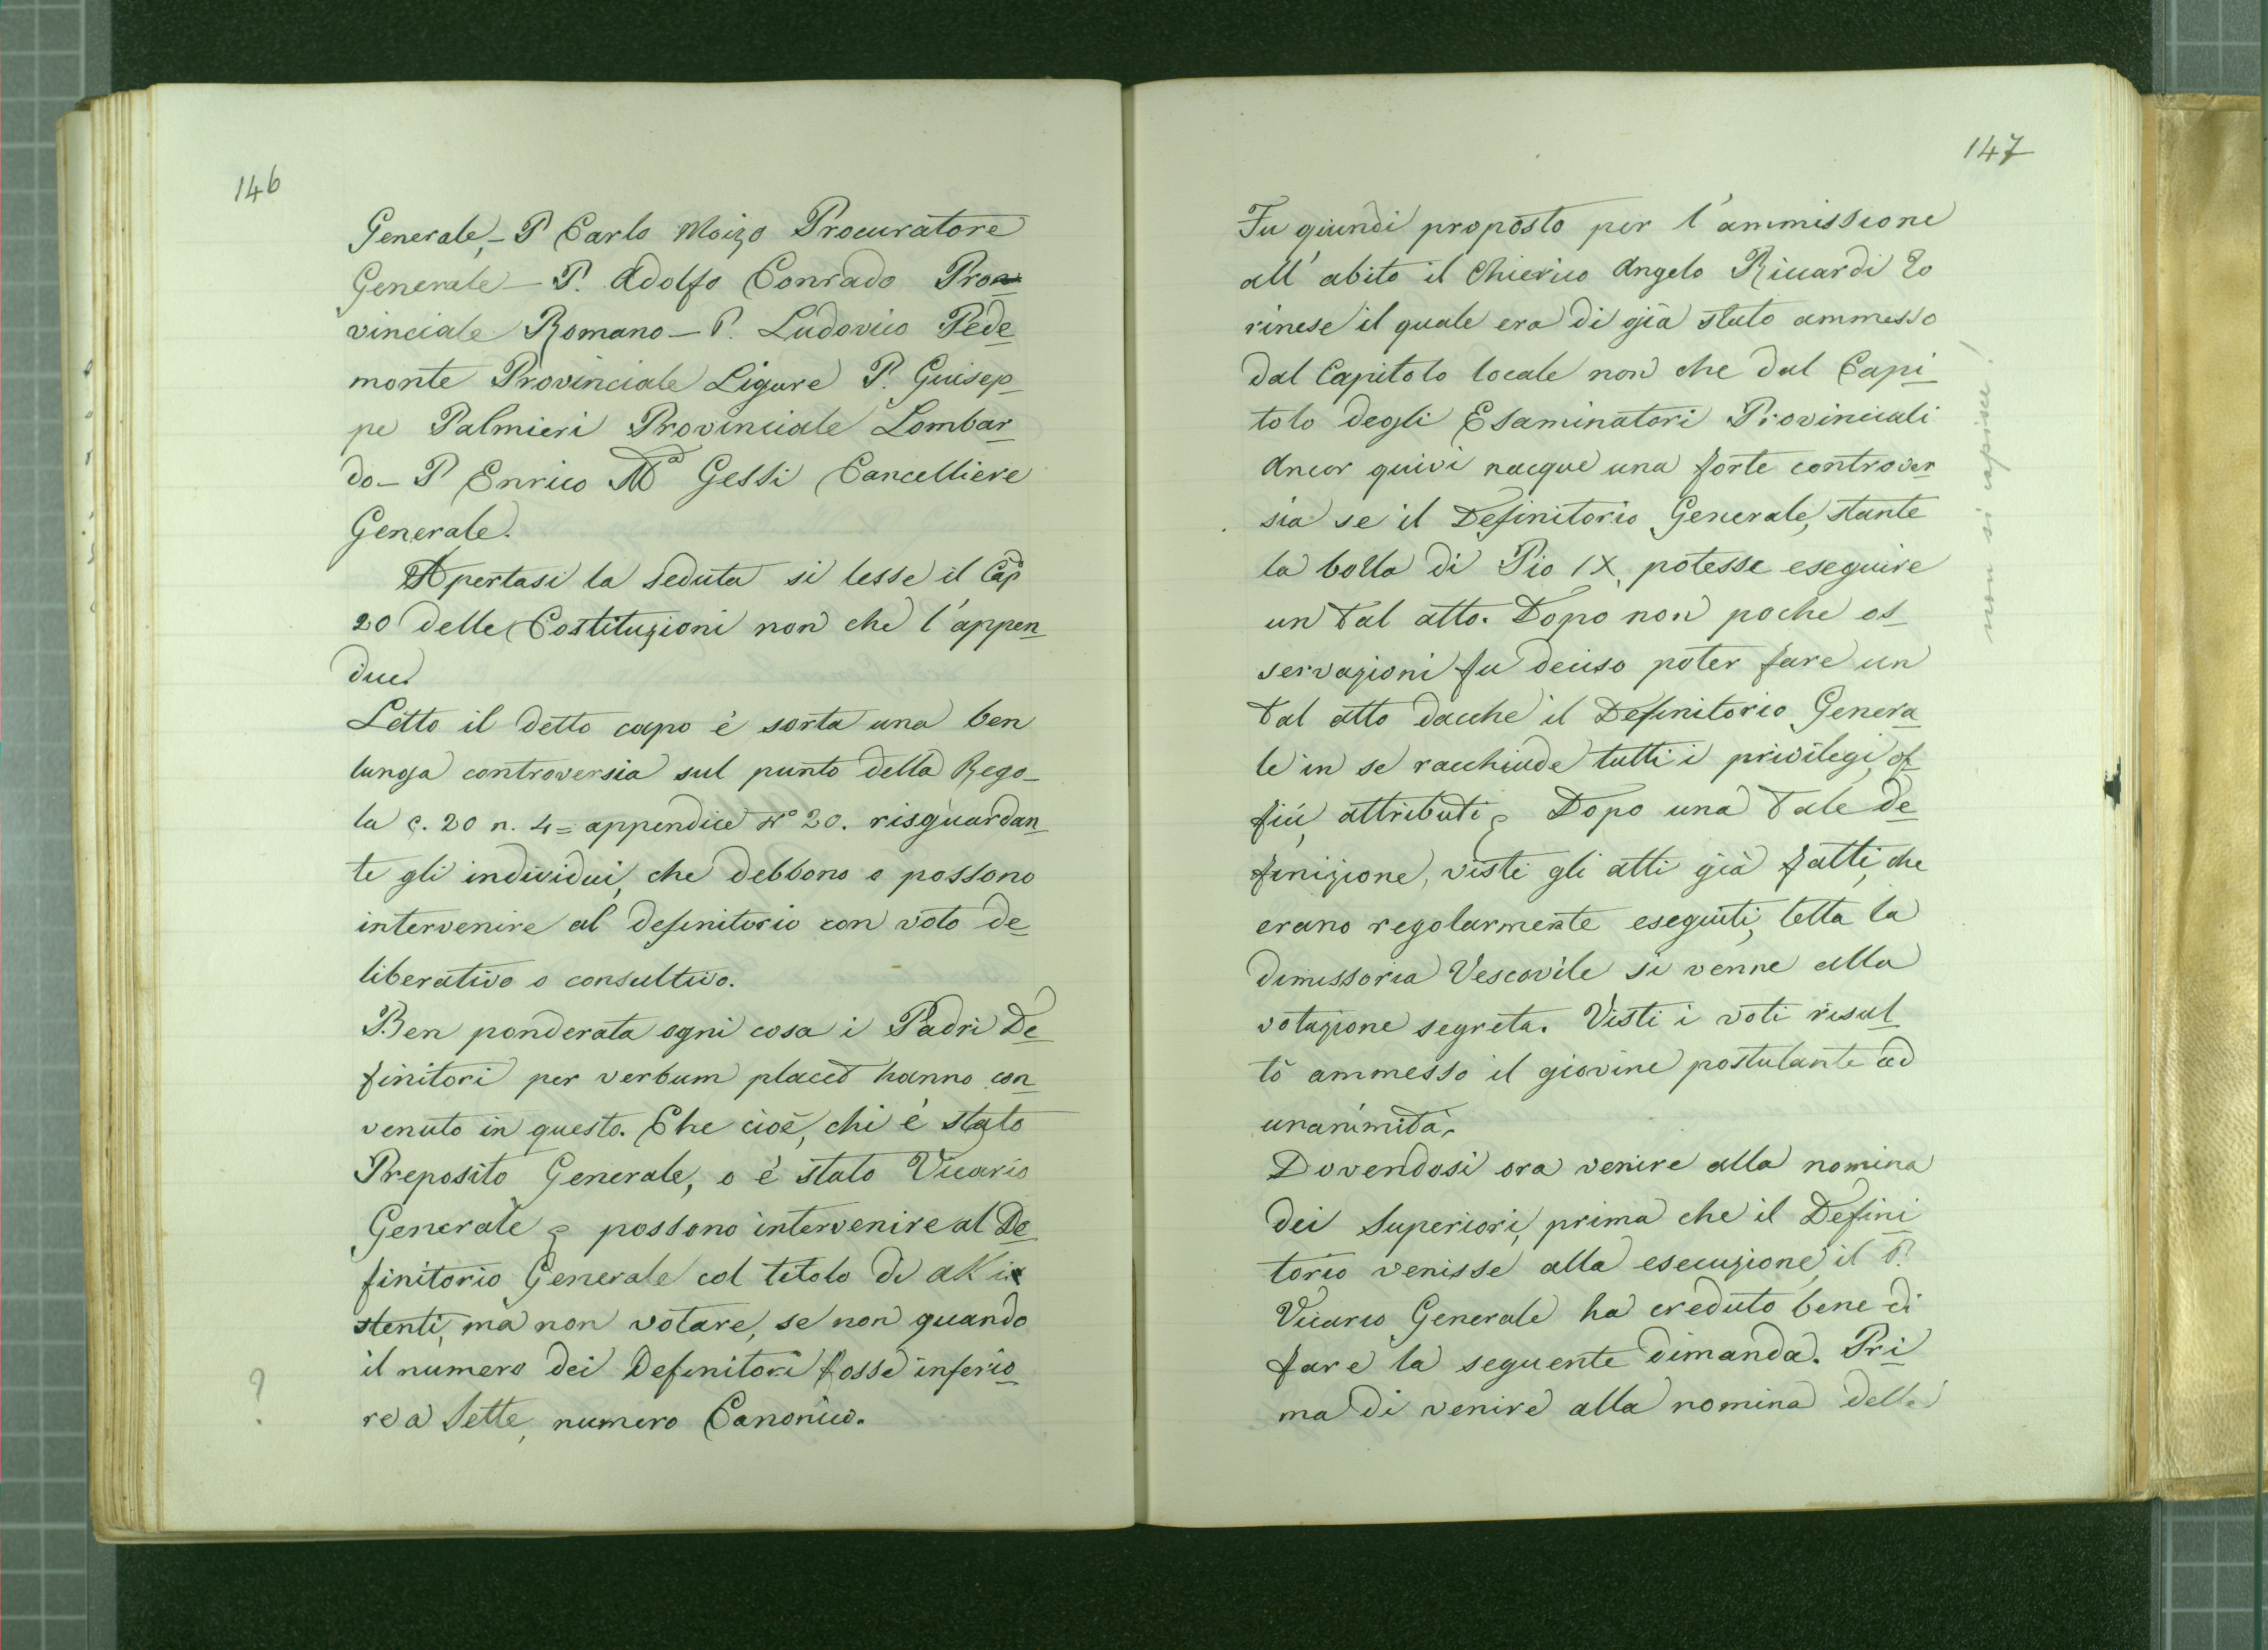 146
Generale,- P Carlo Moizo Procuratore
Generale - P. Adolfo Conrado Pro
vinciale Romano - P. Ludovico Pede
monte Provinciale Ligure P. Guisep-
pe Palmieri Provinciale Lombar
do - P Enrico Mª Gessi Cancelliere
Generale.
Apertasi la Seduta si lesse il Cap
20 delle Costituzioni non che l'appen
dice
Letto il detto capo è sorta una ben
lunga controversia sul punto della Rego-
la c. 20 n. 4 = appendice Nº 20. risguardan
te gli individui, che debbono o possono
intervenire al definitorio con voto de
liberativo o consultivo.
Ben ponderata ogni cosa i Padri De
finitori per verbum placet hanno con
venuto in questo. Che cioè, chi è stato
Preposito Generale, o è stato Vicario
Generale possono intervenire al De
finitorio Generale col titolo di
stenti, ma non votare, se non quando
il numero dei Definitori fosse inferio
re a Sette, numero Canonico.
?
147
Fu quindi proposto per l'ammissione
all'abito il Chierico Angelo Riccardi To
rinese il quale era di già stato ammesso
dal Capitolo locale non che dal Capi
tolo degli Esaminatori Provinciali
Ancor quivi nacque una forte controver
sia se il Definitorio Generale, stante
la bolla di Pio IX, potesse eseguire
un tal atto. Dopo non poche os
servazioni fu deciso poter fare un
tal atto dacchè il Definitorio Genera
le in se racchiude tutti i privilegi, of
fici, attributi Dopo una tale de
finizione, visti gli atti già fatti, che
erano regolarmente eseguiti, letta la
dimissoria Vescovile si venne alla
votazione segreta. Visti i voti risul
tò ammesso il giovine postulante ad
unanimità.
Dovendosi ora venire alla nomina
dei Superiori, prima che il Defini
torio venisse alla esecuzione, il P.
Vicario Generale ha creduto bene di
fare la seguente dimanda. Pri
ma di venire alla nomina delle
non si capisce!